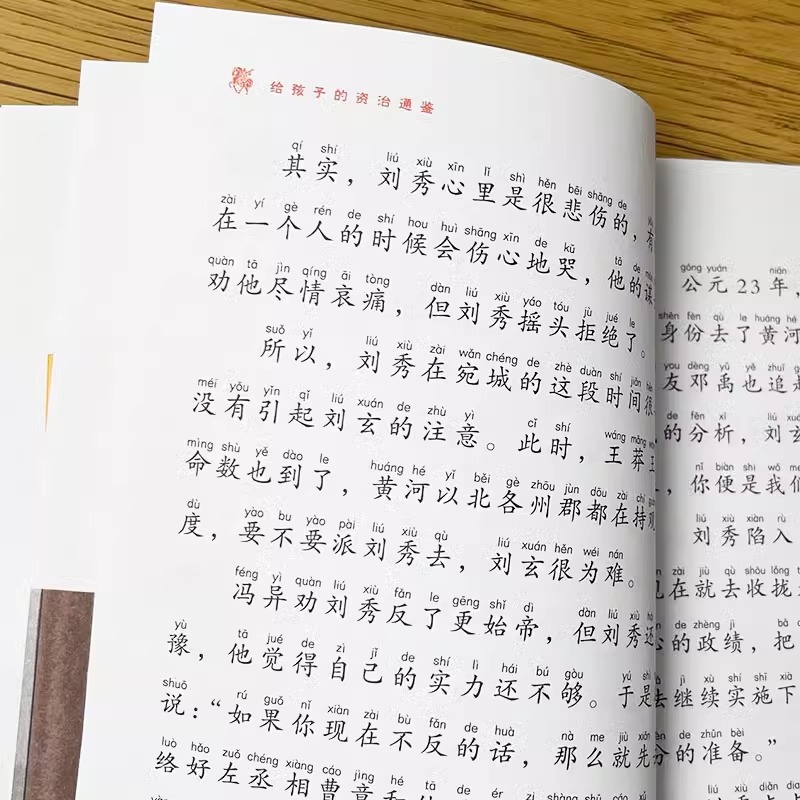 给孩子的资治通鉴
qí shí liú xiù xīn lǐ shì hěn bēi shāng de
其实，刘秀心里是很悲伤的，
zài yí gè rén de shí hou huì shāng xīn de kū tā de
在一个人的时候会伤心地哭，他的谋
quàn tā jìn qíng āi tòng dàn liú xiù yáo tóu jù jué le
劝他尽情哀痛，但刘秀摇头拒绝了。
suǒ yǐ liú xiù zài wǎn chéng de zhè duàn shí jiān hěn
所以，刘秀在宛城的这段时间很
méi yǒu yǐn qǐ liú xuán de zhù yì cǐ shí wáng mǎng
没有引起刘玄的注意。此时，王莽
mìng shù yě dào le huáng hé yǐ běi gè zhōu jùn dōu zài chí
命数也到了，黄河以北各州郡都在持观
dù yào bu yào pài liú xiù qù liú xuán hěn wéi nán
度，要不要派刘秀去，刘玄很为难。
féng yì quàn liú xiù fǎn le gēng shǐ dì dàn liú xiù
冯异劝刘秀反了更始帝，但刘秀还
yù tā jué de zì jǐ de shí lì hái bú gòu yú shì
豫，他觉得自己的实力还不够。于是
shuō rú guǒ nǐ xiàn zài bù fǎn de huà nà me jiù xiān
说：“如果你现在不反的话，那么就先
luò hǎo zuǒ chéng xiàng cáo jìng hé tā de ér zi shàng shū
络好左丞相曹竟和
gōng yuán nián
公元23年，
shēn fèn qù le huáng hé
身份去了黄河
you dèng yǔ yě zhuī
友邓禹也追
de fēn xī liú
的分析，刘玄
nǐ biàn shì wǒ men
，你便是我们
liú xiù xiàn rù
刘秀陷入
zài jiù qù shōu lǒng
在就去收拢
de zhèng jì bǎ
心的政绩，把
jì xù shí shī xià
去继续实施下
de zhǔn bèi
的准备。”